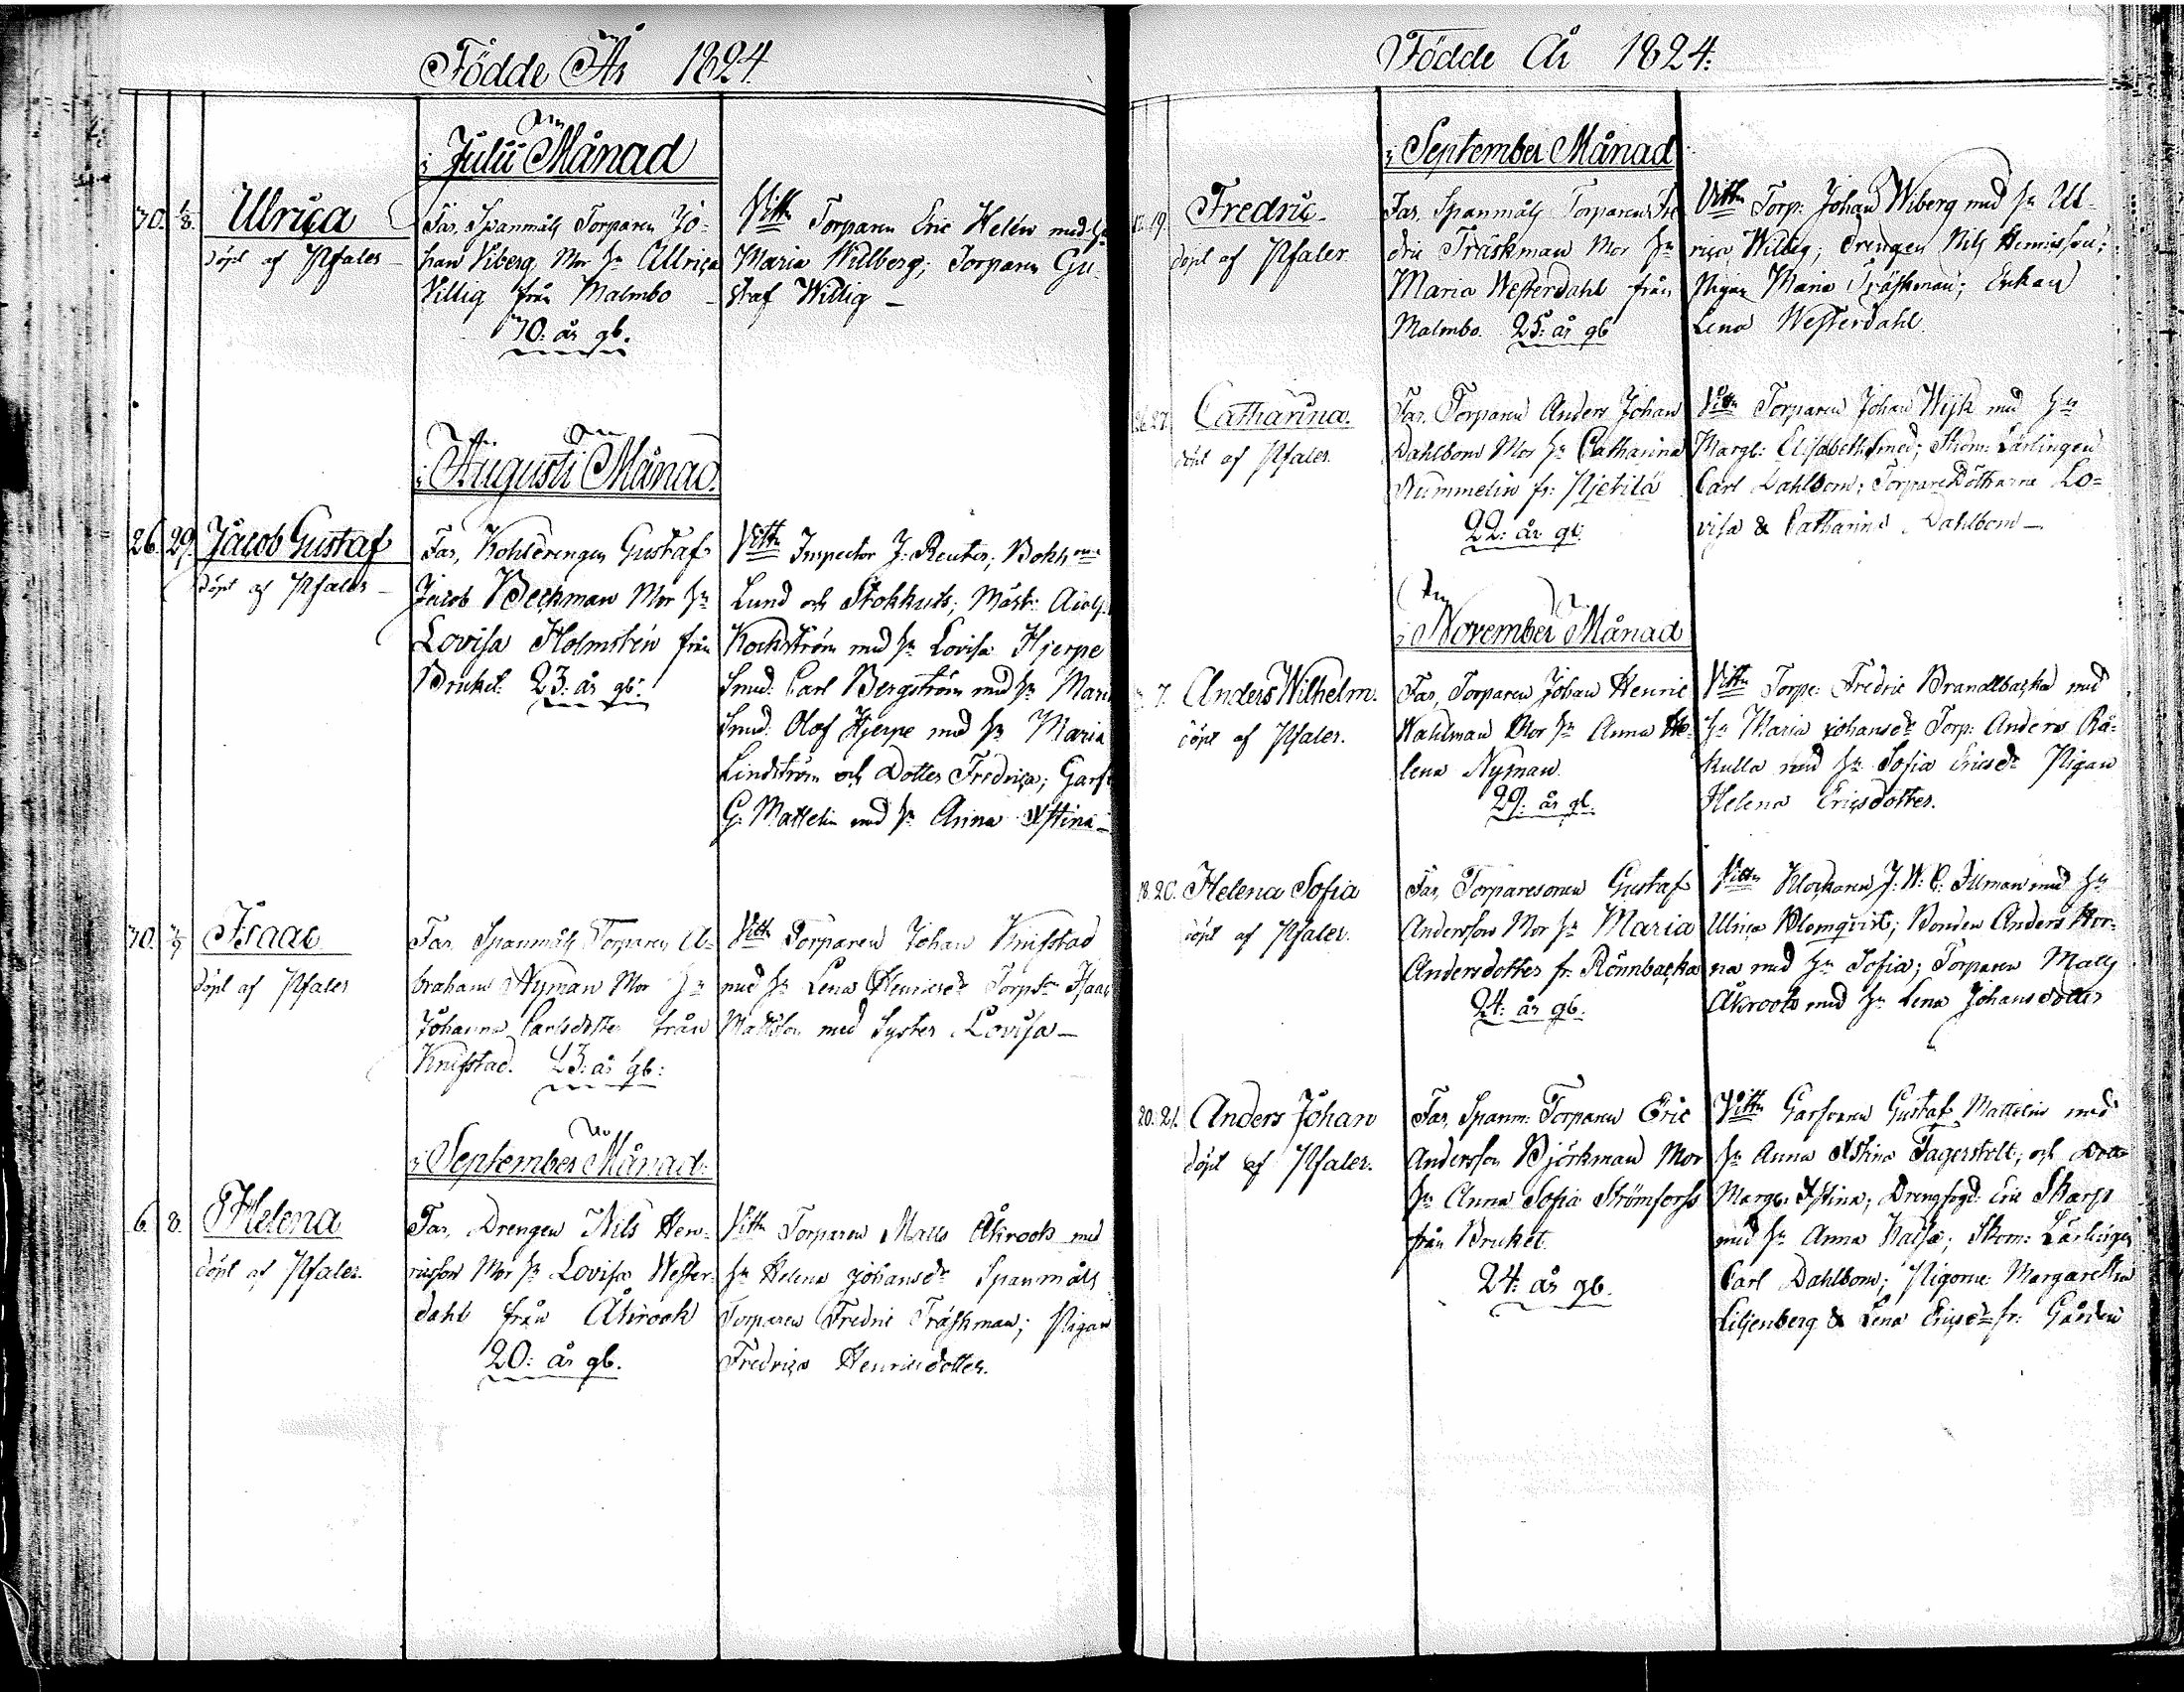 Födde År 1824
i Julii Månad
30. 1/8. Ulrica
döpt af Pfaler
Far, Spanmåls Torparen Jo-
han Viberg, Mor Hu Ullrica
Villig från Malmbo
30: år gb.
Vittn Torparen Eric Helén med Hu
Maria Willberg; Torparen Gu-
staf Willig
i Augusti Månad.
26. 29. Jacob Gustaf
döpt af Pfaler
Far, Kohldrengen Gustaf
Jacob Beckman Mor Hu
Lovisa Holmstén från
Bruket. 23: år gb.
Vittn Inspector J: Reuter; Bokh
Lund och Stokhus; Mäst:
Kockström med Hu Lovisa Hjerpe
Smed: Carl Bergström med Hu Mari
Smed: Olof Hjerpe med Hu Maria
Lindström och Dotter Fredrica; Garf
G: Mattelin med Hu Anna Xstina
30. Isaac
döpt af Pfaler
Far, Spanmåls Torparen A-
braham Nyman Mor Hu
Johanna Carlsdotter från
Knifstad. år gb:
Vittn Torparen Johan Knifstad
med Hu Lena Henricsdr Torpsn Isaac
Mattsson med Syster Lovisa
i September Månad:
6. 8. Helena
döpt af Pfaler.
Far, Drengen Nils Hen-
ricsson Mor Hu Lovisa Wester-
dahl från Åkrook
20: år gb.
Vittn Torparen Matts Åkrook med
Hu Helena Johansdr Spanmåls
Torparen Fredric Träskman; Pigan
Fredrica Henricsdotter.
Födde År 1824.
i September Månad
19. Fredric
döpt af Pfaler
Far, Spanmåls Torparen Fre
dric Träskman Mor Hu
Maria Westerdahl från
Malmbo. 25: år gb
Vittn Torp: Johan Wiberg med Hu Ul-
rica Willig; drengen Nils Henricsson;
Pigan Maria Träskman; Enkan
Lena Westerdahl
27. Catharina.
döpt af Pfaler.
Far, Torparen Anders Johan
Dahlbom Mor Hu Catharina
Nummelin fr: Pjetilä
22: år gb
Vittn Torparen Johan Wijk med Hu
Margt: Elisabeth Smed; Skom: Lärlingen
Carl Dahlbom; TorpareDöttrarna Lo-
visa & Catharina Dahlbom
i November Månad
7. Anders Wilhelm.
döpt af Pfaler.
Far, Torparen Johan Henric
Wahlman Mor Hu Anna He-
lena Nyman.
29: år gb.
Vittn Torp: Fredric Brandbacka med
Hu Maria Johansdr Torp: Anders Rå-
kulla med Hu Sofia Ericsdr Pigan
Helena Ericsdotter.
18. 20. Helena Sofia
döpt af Pfaler.
Far, Torparesonen Gustaf
Andersson Mor Hu Maria
Andersdotter fr: Rönnbacka
24: år gb.
Vittn Klockaren J: W: C: Illman med Hu
Ulrica Blomqvist; Bonden Anders Hor-
na med Hu Sofia; Torparen Matts
Åkrook med Hu Lena Johansdotter
20. 21. Anders Johan
döpt af Pfaler.
Far, Spanm: Torparen Eric
Andersson Björkman Mor
Hu Anna Sofia Strömforss
från Bruket.
24: år gb.
Vittn Garfvaren Gustaf Mattelin med
Hu Anna Xstina Fagerstolt; och
Margt: Xstina; Drengfogd: Eric Skarp
med Hu Anna Caisa; Skom: Lärlingen
Carl Dahlbom; Pigorne Margaretha
Liljenberg & Lena Ericsdr fr: Gården